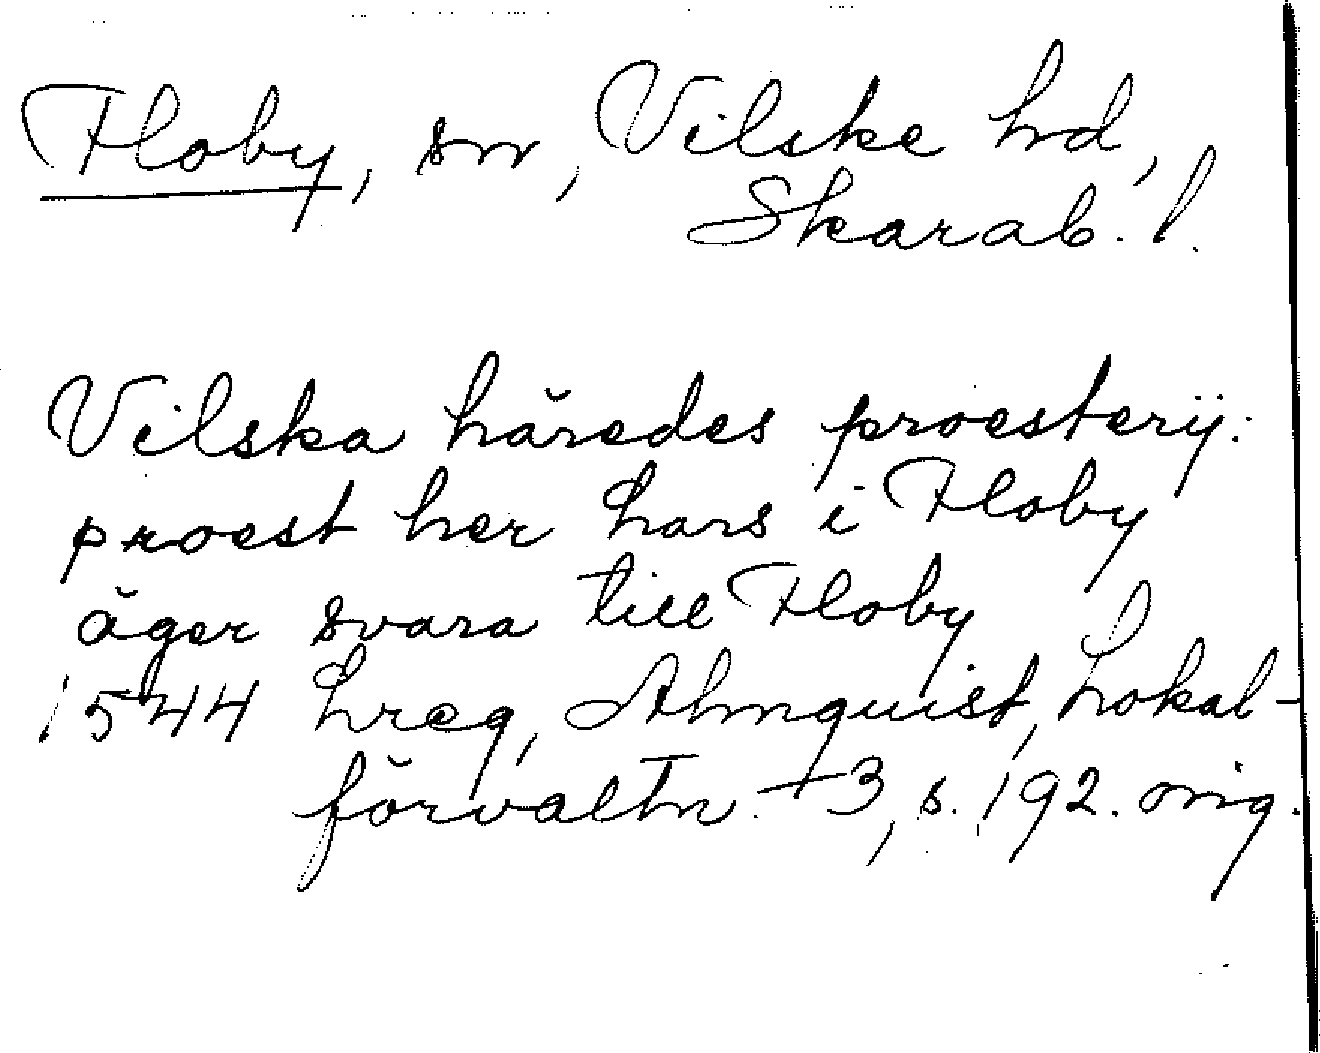 Floby, sn, Vilske hd,
Skarab. l.
Vilska häredes proesterij:
proest her hans i Floby
äger svara till Floby
1544 hreg, Almquist, Lokal-
förvaltn. +3, s. 192. orig.